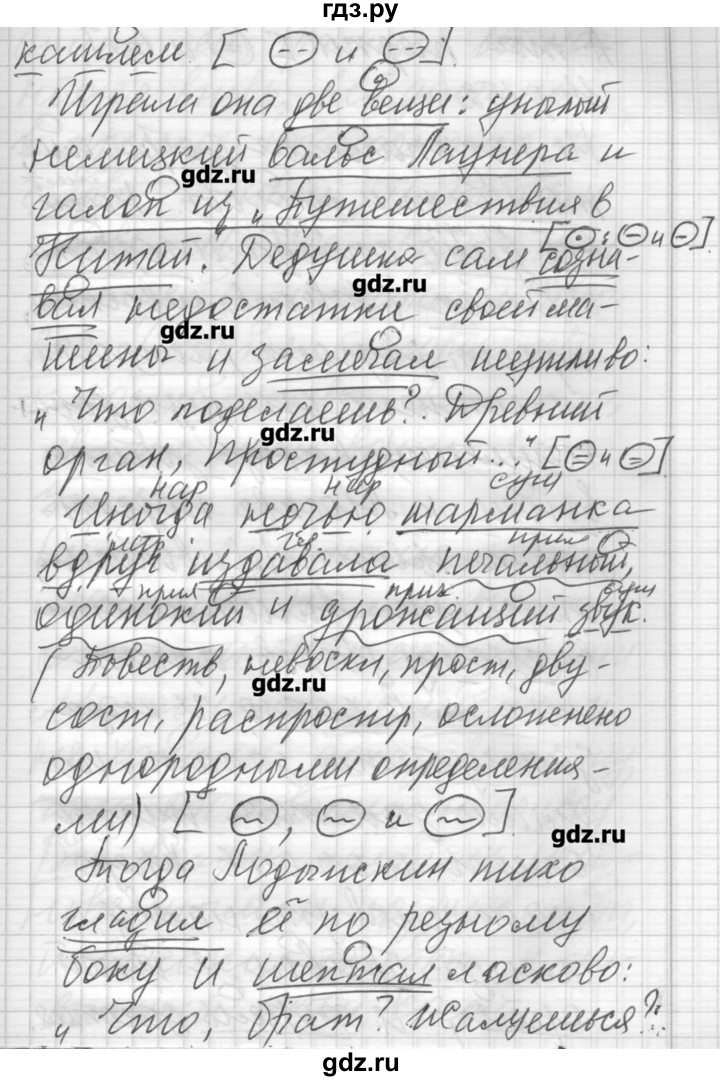 гдз.ру
кашлем. [ и ].
Играла она две вещи: унылый
немецкий вальс Лаунера и
gdz.ru
галоп из „Путешествия в
[ : и ].
Китай." Дедушка сам созна-
gdz.ru
вал недостатки своей ма-
gdz.ru
шины и замечал шутливо:
„Что поделаешь?.. Древний
gdz.ru
орган, простудный..." [ и ]
нар нар сущ
Иногда ночью шарманка
нар гл. прил
вдруг издавала печальный,
прил прич. сущ
одинокий и дрожащий звук.
(Повеств, невоскл, прост, дву-
gdz.ru
сост, распростр, осложнено
однородными определения-
ми) [ , и ]
gdz.ru
Тогда Лодыжкин тихо
гладил её по резному
боку и шептал ласково:
„Что, брат? Жалуешься?..
gdz.ru